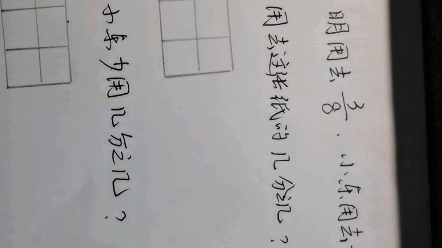 明用去3/8.小东用去
用去这张纸的几分之几?
小东少用几分之几?